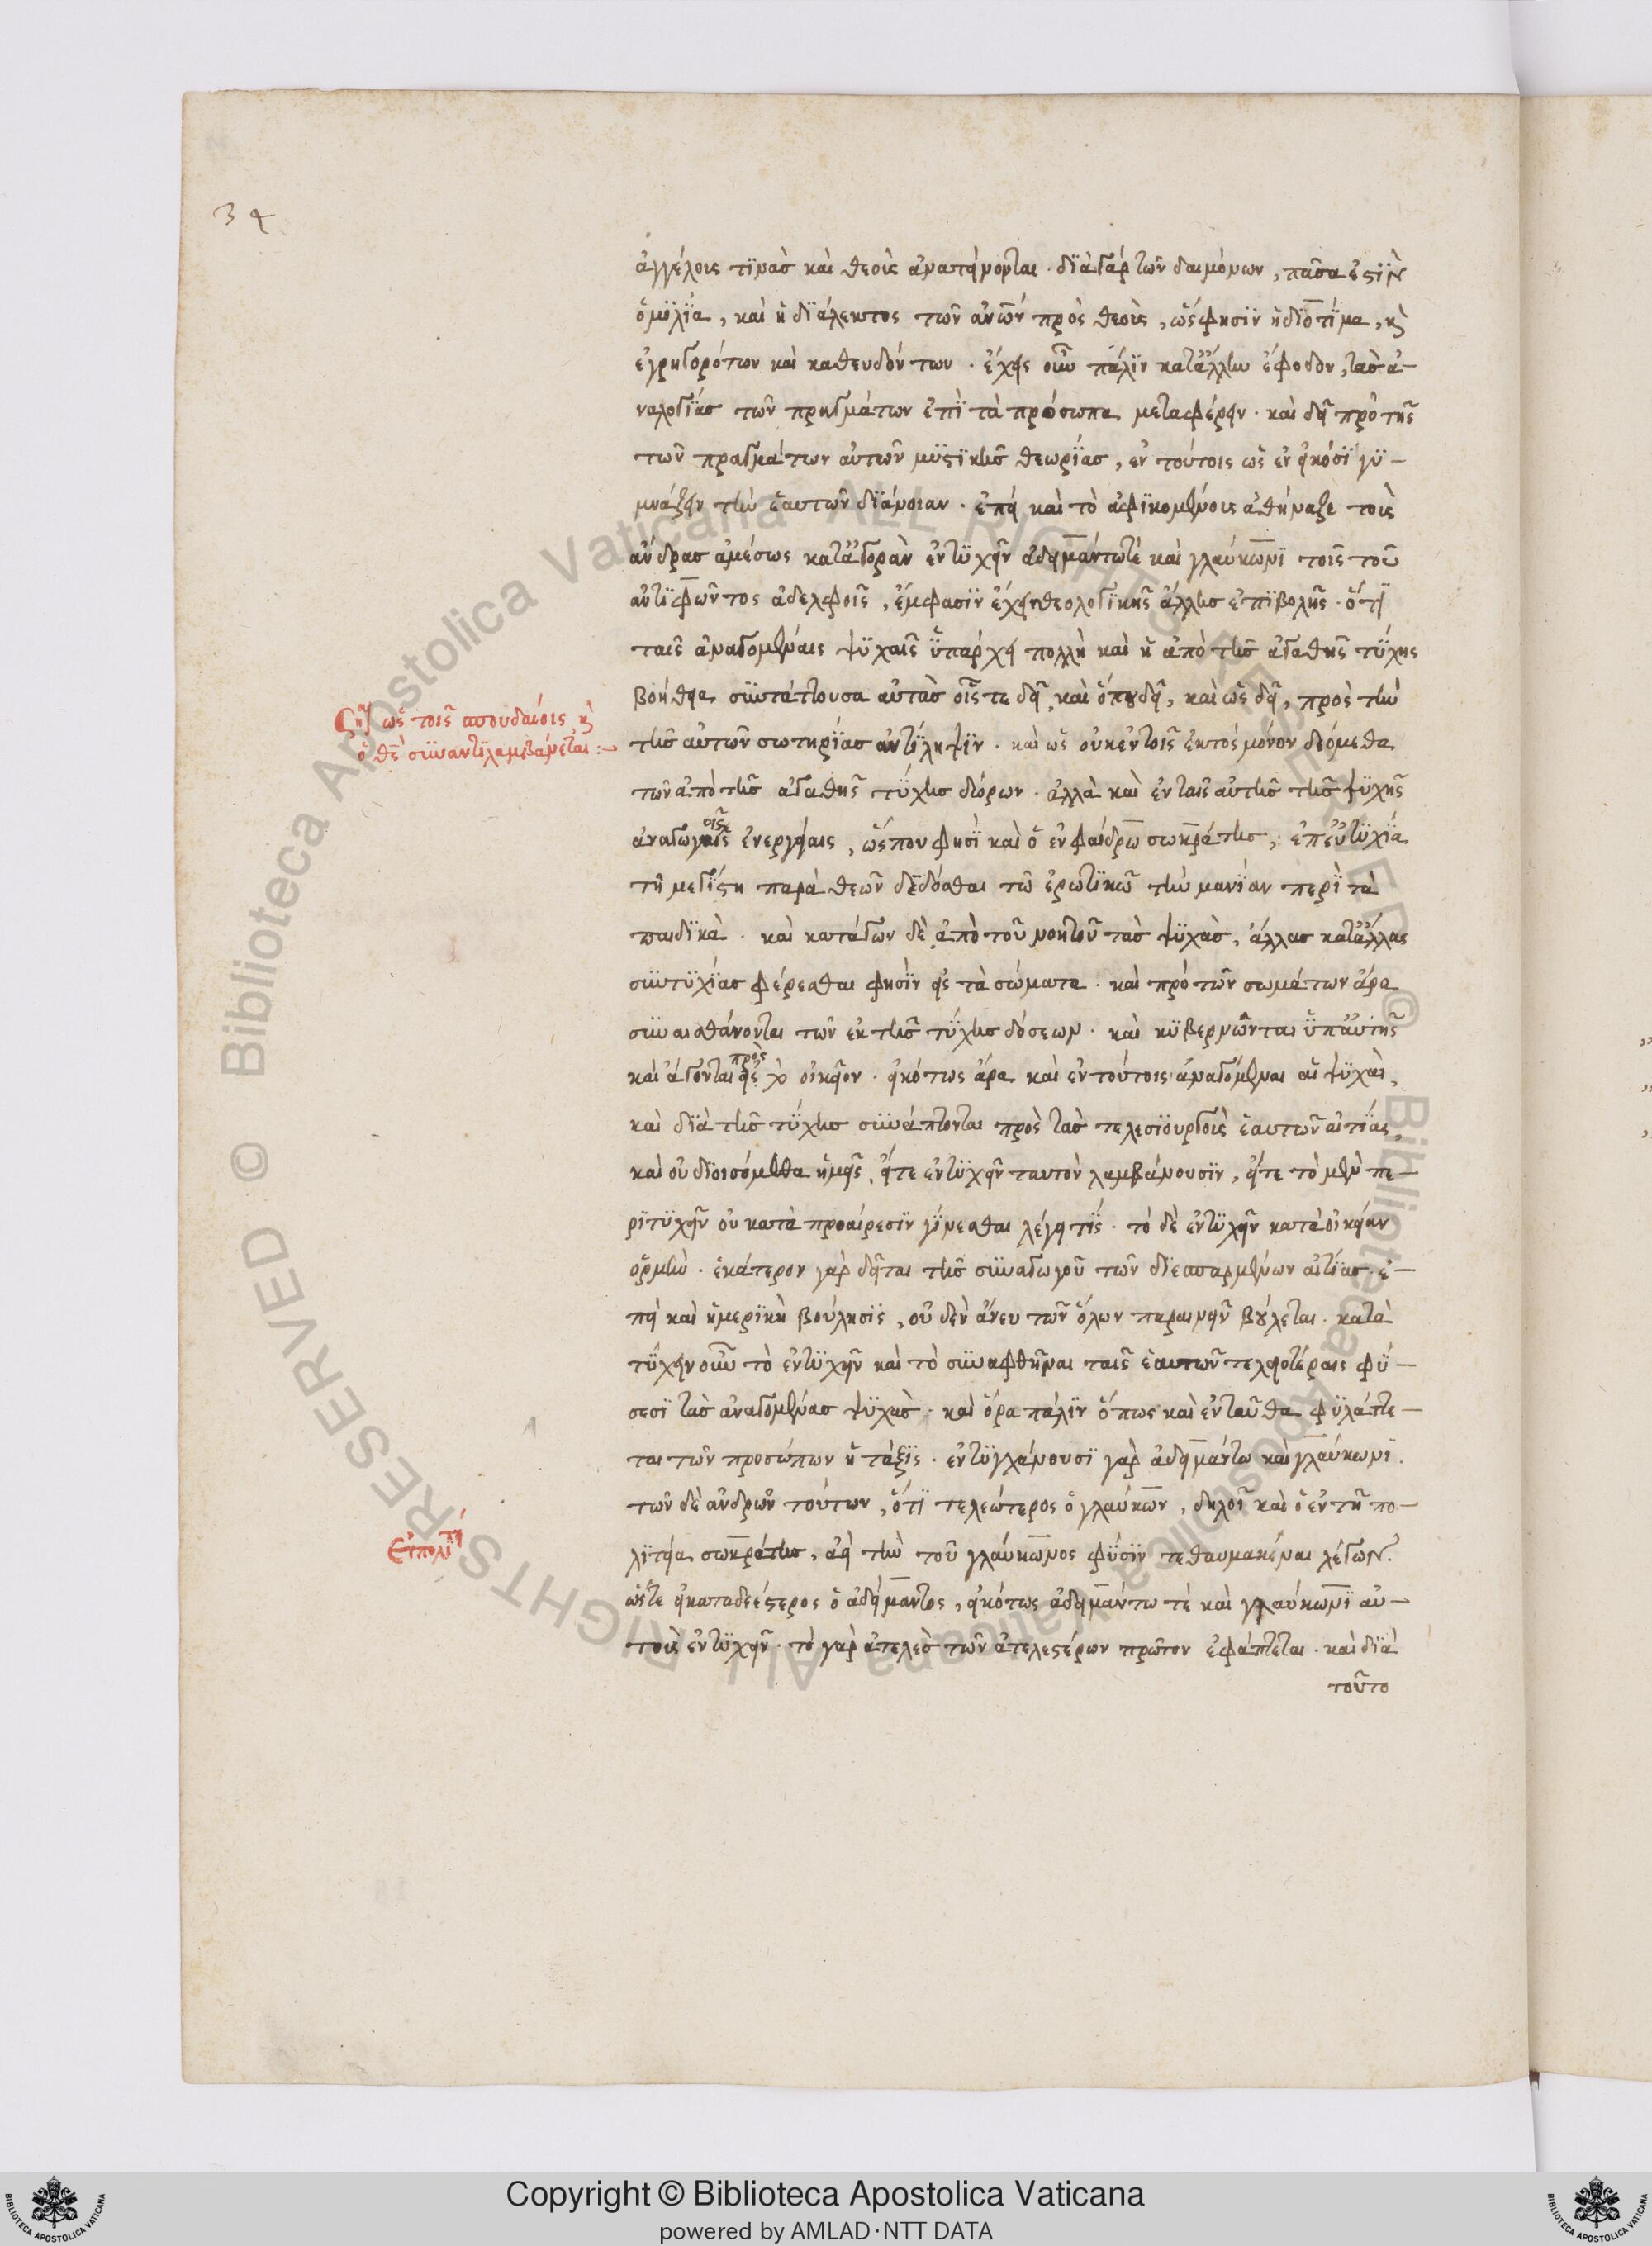 34
ἀγγέλοις τινὰς καὶ θεοῖς ἀνατείνονται · διὰ γὰρ τῶν δαιμόνων, πᾶσα ἐστὶν
ὁμιλία, καὶ ἡ διάλεκτος τῶν ἀνων πρὸς θεοὺς, ὥς φησιν ἡ διοτίμα, κ
ἐγρηγορότων καὶ καθευδόντων · ἔχεις οὖν πάλιν κατἄλλην ἔφοδον, τὰς ἀ-
ναλογίας τῶν πραγμάτων ἐπὶ τὰ πρόσωπα μεταφέρειν · καὶ δεῖ πρὸ τῆς
τῶν πραγμάτων αὐτῶν μυστικῆς θεωρίας, ἐν τούτοις ὡς ἐν εἰκόσι γυ-
μνάζειν τὴν ἑαυτῶν διάνοιαν · ἐπεὶ καὶ τὸ ἀφικομένοις ἀθήναζε τοὺς
ἄνδρας ἀμέσως κατἀγορὰν ἐντυχεῖν ἀδειμάντωτέ καὶ γλαύκωνι τοῖς τοῦ
ἀντιφῶντος ἀδελφοῖς, ἔμφασιν ἔχει θεολογικῆς ἄλλης ἐπιβολῆς · ὅτι
ταῖς ἀναγομέναις ψυχαῖς ὑπάρχει πολλὴ καὶ ἡ ἀπὸ τῆς ἀγαθῆς τύχης
βοήθεια συντάττουσα αὐτὰς οἷς τε δεῖ, καὶ ὅπου δεῖ, καὶ ὡς δεῖ, πρὸς τὴν
τῆς αὐτῶν σωτηρίας ἀντίληψιν · καὶ ὡς οὐκ ἐν τοῖς ἐκτός μόνον δεόμεθα
τῶν ἀπὸ τῆς ἀγαθῆς τύχης δώρων · ἀλλὰ καὶ ἐν ταῖς αὐτῆς τῆς ψυχῆς
ἀναγωγοῖς ἐνεργείαις, ὥς που φησὶ καὶ ὁ ἐν φαίδρω σωκράτης, ἐπεὐτυχία
τῆ μεγίστη παρὰ θεῶν δεδόσθαι τῶ ἐρωτικῶ τὴν μανίαν περὶ τὰ
παιδικὰ · καὶ κατάγων δὲ ἀπὸ τοῦ νοητοῦ τὰς ψυχὰς, ἄλλας κατἄλλας
συντυχίας φέρεσθαι φησὶν εἰς τὰ σώματα · καὶ πρὸ τῶν σωμάτων ἄρα
συναισθάνονται τῶν ἐκ τῆς τύχης δόσεων · καὶ κυβερνῶνται ὑπαὐτῆς
καὶ ἄγονται πρὸς εἰς τὸ οἰκεῖον · εἰκότως ἄρα καὶ ἐν τούτοις ἀναγόμεναι αἱ ψυχαὶ,
καὶ διὰ τῆς τύχης συνάπτονται πρὸς τὰς τελεσιουργοὺς ἑαυτῶν αἰτίας,
καὶ οὐ διοισόμεθα ἡμεῖς, εἴτε ἐντυχεῖν ταυτὸν λαμβάνουσιν, εἴτε τὸ μὲν πε-
ριτυχεῖν οὐ κατὰ προαίρεσιν γίνεσθαι λέγει τίς · τὸ δὲ ἐντυχεῖν κατὰ οἰκείαν
ὁρμὴν · ἑκάτερον γὰρ δεῖται τῆς συναγωγοῦ τῶν διεσπαρμένων αἰτίας · ἐ-
πεὶ καὶ ἡ μερικὴ βούλησις, οὐ δὲν ἄνευ τῶν ὅλων περαινειν βούλεται · κατὰ
τύχην οὖν τὸ ἐντυχεῖν καὶ τὸ συναφθῆναι ταῖς ἑαυτῶν τελειοτέραις φύ-
σεσι τὰς ἀναγομένας ψυχὰς · καὶ ὅρα πάλιν ὅπως καὶ ἐνταῦθα φυλάττε-
ται τῶν προσώπων ἡ τάξις · ἐντυγχάνουσι γὰρ ἀδειμάντω καὶ γλαύκωνι.
τῶν δὲ ἀνδρῶν τούτων, ὅτι τελεώτερος ὁ γλαύκων, δηλοῖ καὶ ὁ ἐν τῆ πο-
λιτεία σωκράτης, ἀεὶ τὴν τοῦ γλαύκωνος φύσιν τεθαυμακέναι λέγων.
ὥστε εἰ καταδεέστερος ὁ ἀδείμαντος, εἰκότως ἀδειμάντω τὲ καὶ γλαύκωνι αὐ-
τοὺς ἐντυχεῖν · τὸ γὰρ ἀτελὲς τῶν ἀτελεστέρων πρῶτον ἐφάπτεται · καὶ διὰ
τοῦτο
ση ὡς τοῖς σπουδαίοις κ
ὁ θς συναντιλαμβάνεται :-
ἐν πολιτεί
Copyright © Biblioteca Apostolica Vaticana
powered by AMLAD·NTT DATA